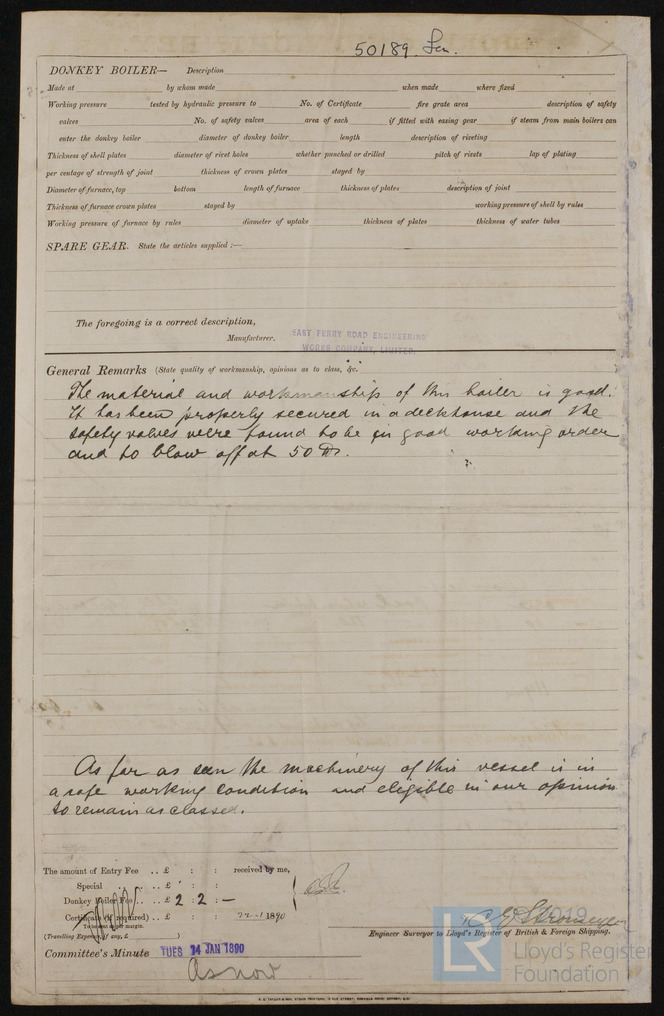 50189 Lon.
DONKEY BOILER— Description
Made at by whom made when made where fixed
Working pressure tested by hydraulic pressure to No. of Certificate fire grate area description of safety
valves No. of safety valves area of each if fitted with easing gear if steam from main boilers can
enter the donkey boiler diameter of donkey boiler length description of riveting
Thickness of shell plates diameter of rivet holes whether punched or drilled pitch of rivets lap of plating
per centage of strength of joint thickness of crown plates stayed by
Diameter of furnace, top bottom length of furnace thickness of plates description of joint
Thickness of furnace crown plates stayed by working pressure of shell by rules
Working pressure of furnace by rules diameter of uptake thickness of plates thickness of water tubes
SPARE GEAR. State the articles supplied :—
The foregoing is a correct description,
Manufacturer.
EAST FERRY ROAD ENGINEERING
WORKS COMPANY, LIMITED.
General Remarks (State quality of workmanship, opinions as to class, &c.
The material and workmanship of this boiler is good.
It has been properly secured in a deckhouse and the
safety valves were found to be in good working order
and to blow off at 50 lbs.
As far as seen the machinery of this vessel is in
a safe working condition and eligible in our opinion
to remain as classed.
The amount of Entry Fee .. £ : : received by me,
Special .. .. £ : :
Donkey Boiler Fee .. £ 2 : 2 : —
Certificate (if required) .. £ : : 22-1 1890
To be sent as per margin.
(Travelling Expenses, if any, £ )
Engineer Surveyor to Lloyd's Register of British & Foreign Shipping.
Committee's Minute TUES 14 JAN 1890
As now
LR
2019
Lloyd's Register
Foundation